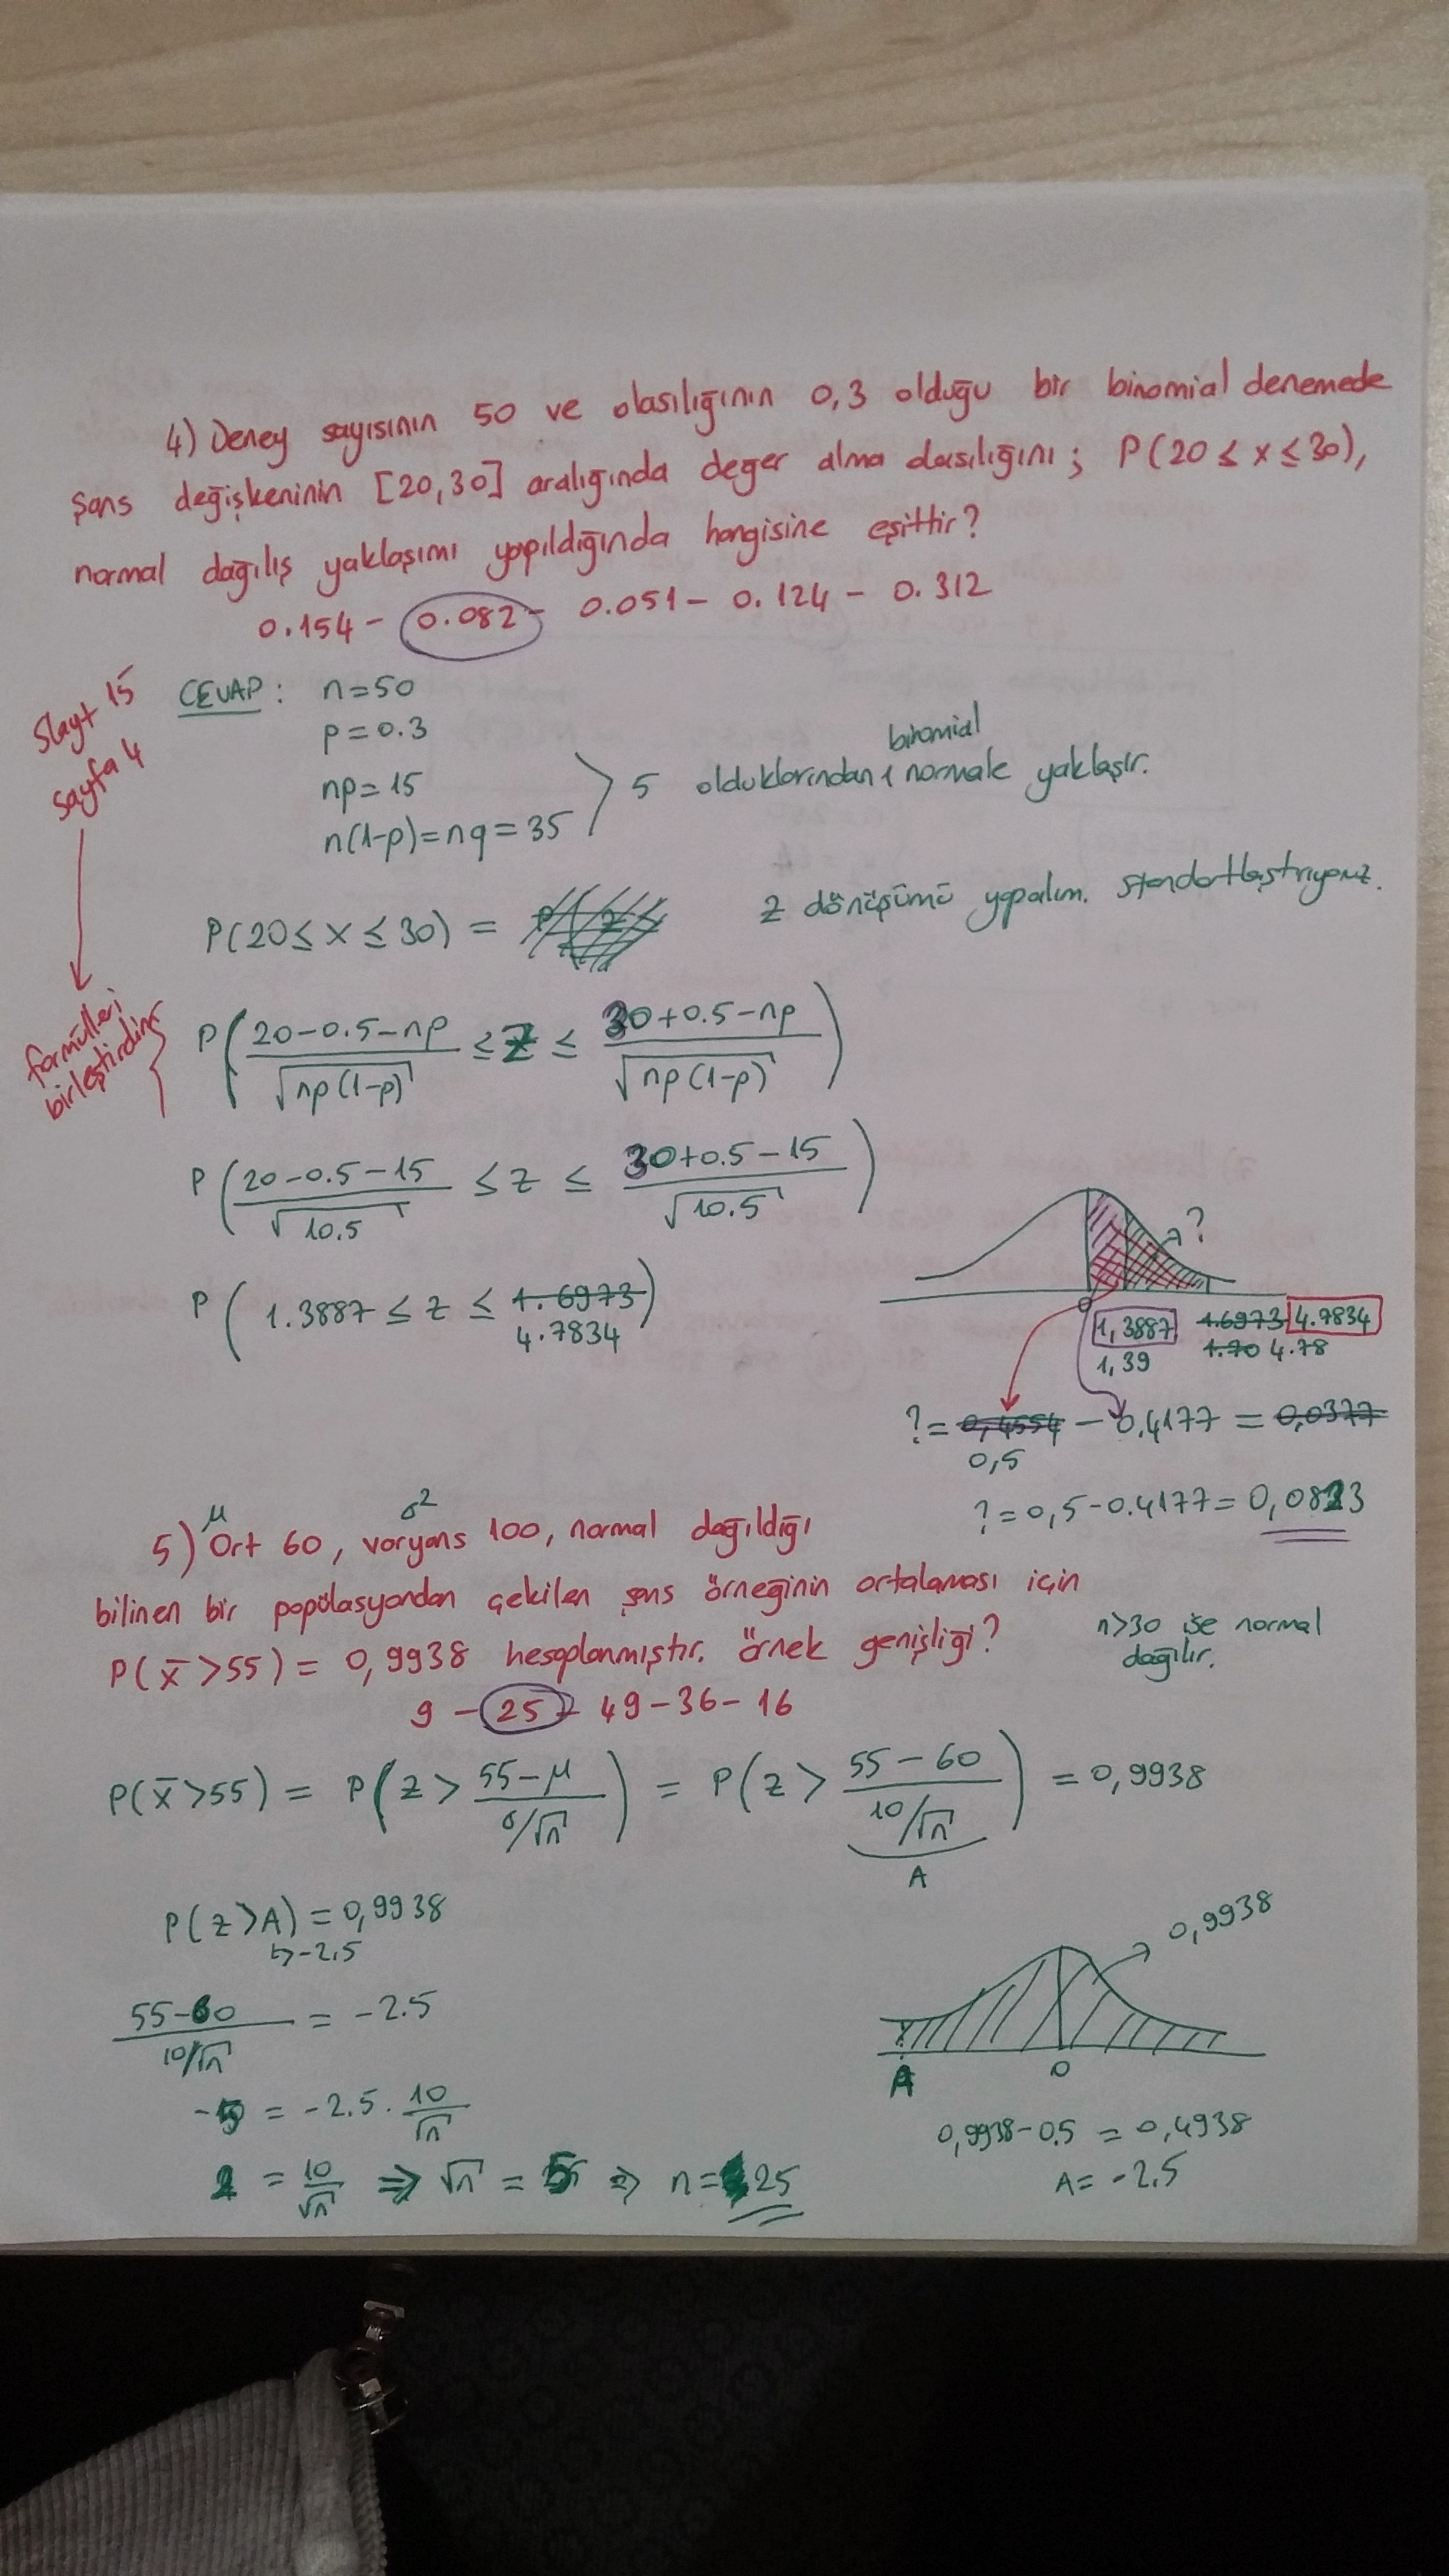 4) Deney sayısının 50 ve olasılığının 0,3 olduğu bir binomial denemede
şans değişkeninin [20,30] aralığında değer alma olasılığını; P(20 ≤ x ≤ 30),
normal dağılış yaklaşımı yapıldığında hangisine eşittir?
0.154 - 0.082 - 0.051 - 0.124 - 0.312
Slayt 15
sayfa 4
CEVAP: n=50
p=0.3
np=15
n(1-p)=nq=35
> 5 olduklarından binomial normale yaklaşır.
P(20 ≤ x ≤ 30) =
z dönüşümü yapalım. standartlaştırıyoruz.
formülleri
birleştirdim
P( (20-0.5-np)/√(np(1-p)) ≤ z ≤ (30+0.5-np)/√(np(1-p)) )
P( (20-0.5-15)/√10.5 ≤ z ≤ (30+0.5-15)/√10.5 )
P( 1.3887 ≤ z ≤ 1.6973 )
4.7834
?
0
1,3887 1.6973 4.7834
1,39 1.70 4.78
? = 0,4554 - 0.4177 = 0,0377
0,5
? = 0,5-0.4177 = 0,0823
μ σ²
5) Ort 60, varyans 100, normal dağıldığı
bilinen bir popülasyondan çekilen şans örneğinin ortalaması için
P(x̄ >55) = 0,9938 hesaplanmıştır. örnek genişliği?
n>30 ise normal
dağılır.
9 - 25 - 49 - 36 - 16
P(x̄ >55) = P( z > (55-μ)/(σ/√n) ) = P( z > (55-60)/(10/√n) ) = 0,9938
A
P(z>A) = 0,9938
↳ -2.5
(55-60)/(10/√n) = -2.5
-5 = -2.5 . 10/√n
2 = 10/√n ⇒ √n = 5 ⇒ n = 25
0,9938
A 0
0,9938-0.5 = 0,4938
A = -2.5